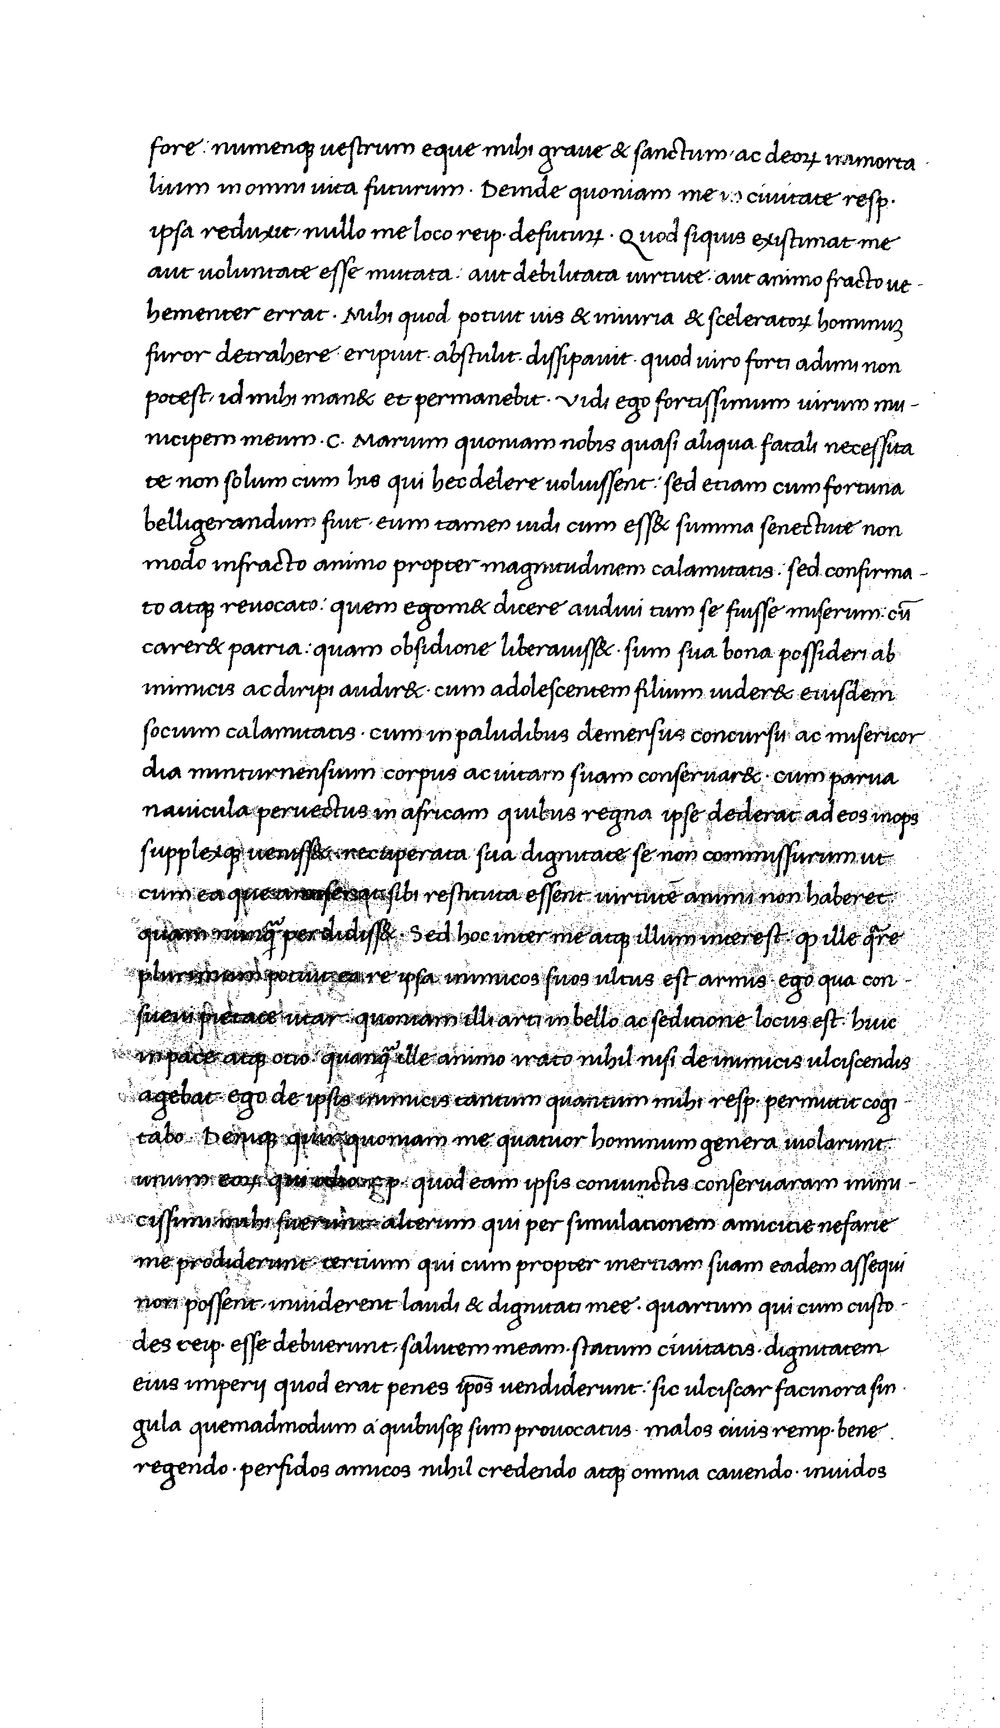 fore: numenqꝫ vestrum eque mihi graue & sanctum, ac deoꝝ inmorta
lium in omni uita futurum. Deinde quoniam me in ciuitate resp.
ipsa reduxit, nullo me loco reip. defuturꝝ. Quod siquis existimat me
aut uoluntate esse mutata: aut debilitata uirtute. aut animo fracto ue-
hementer errat. Mihi quod potuit uis & iniuria & sceleratoꝝ hominuꝫ
furor detrahere eripuit. abstulit. dissipauit. quod uiro forti adimi non
potest, id mihi man& et permanebit. Vidi ego fortissimum uirum mu-
nicipem meum. C. Marium quoniam nobis quasi aliqua fatali necessita
te non solum cum his qui hec delere uoluissent: sed etiam cum fortuna
belligerandum fuit. eum tamen uidi cum ess& summa senectute non
modo infracto animo propter magnitudinem calamitatis: sed confirma-
to atqꝫ reuocato: quem egom& dicere audiui tum se fuisse miserum: cū
carer& patria: quam obsidione liberauiss&. sum sua bona possideri ab
inimicis ac diripi audir&. cum adolescentem filium uider& eiusdem
socium calamitatis. cum in paludibus demersus concursu ac misericor
dia minturnensium corpus ac uitam suam conseruar&. cum parua
nauicula peruectus in africam quibus regna ipse dederat ad eos inops
supplexqꝫ ueniss&. recuperata sua dignitate se non commissurum ut
cum ea que sibi restituta essent uirtutē animi non haberet
quam nunq̃ perdidiss&. Sed hoc inter me atqꝫ illum interest. ꝙ ille q̃re
plurimum potuit ea re ipsa inimicos suos ultus est armis. ego qua con-
sueui pietate utar. quoniam illi arti in bello ac seditione locus est. huic
in pace atqꝫ otio. quanq̃ ille animo irato nihil nisi de inimicis ulciscendis
agebat. ego de ipsis inimicis tantum quantum mihi resp. permittit cogi-
tabo. Deniqꝫ quoniam me quatuor hominum genera uiolarunt
unum eoꝝ qui odio r.p. quod eam ipsis coniunctis conseruaram inimi-
cissimi mihi fuerunt. alterum qui per simulationem amicitie nefarie
me prodiderunt. tertium qui cum propter inertiam suam eadem assequi
non possent, inuiderent laudi & dignitati mee. quartum qui cum custo-
des reip. esse debuerunt, salutem meam. statum ciuitatis. dignitatem
eius imperij quod erat penes ip̄os uendiderunt: sic ulciscar facinora sin.
gula quemadmodum a quibusqꝫ sum prouocatus. malos ciuis remp. bene
regendo. perfidos amicos nihil credendo atqꝫ omnia cauendo. inuidos